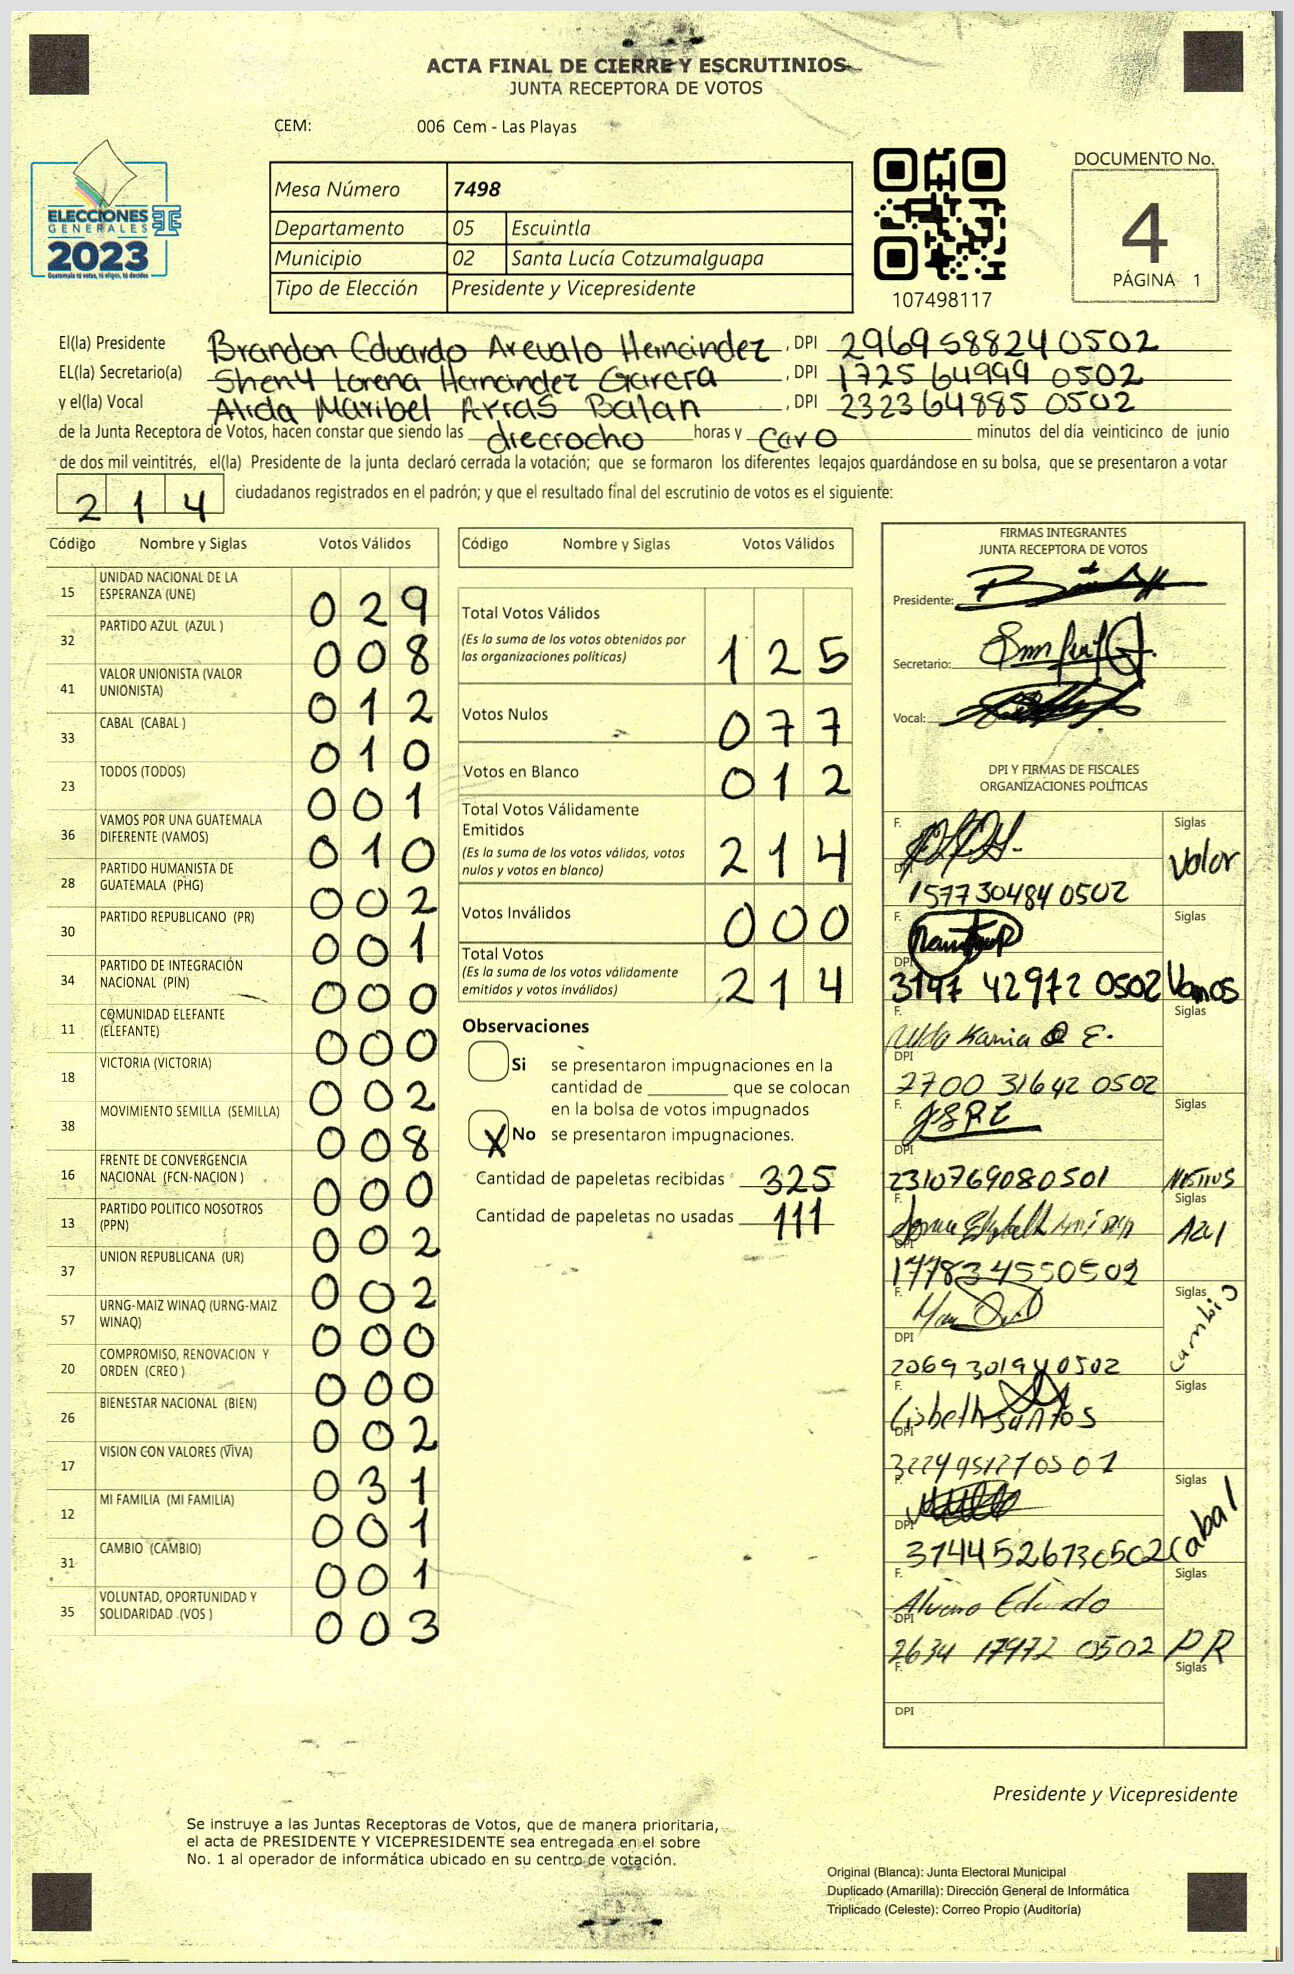 ACTA FINAL DE CIERRE Y ESCRUTINIOS
JUNTA RECEPTORA DE VOTOS
CEM: 006 Cem - Las Playas
ELECCIONES
GENERALES
2023
Guatemala tú votas, tú eliges, tú decides
Mesa Número 7498
Departamento 05 Escuintla
Municipio 02 Santa Lucía Cotzumalguapa
Tipo de Elección Presidente y Vicepresidente
107498117
DOCUMENTO No.
4
PÁGINA 1
El(la) Presidente Brandon Eduardo Arevalo Hernández, DPI 2969588240502
EL(la) Secretario(a) Sheny Lorena Hernandez Garcra, DPI 1725 64999 0502
y el(la) Vocal Alida Maribel Arras Balan, DPI 2323 64885 0502
de la Junta Receptora de Votos, hacen constar que siendo las drecrocho horas y cero minutos del día veinticinco de junio
de dos mil veintitrés, el(la) Presidente de la junta declaró cerrada la votación; que se formaron los diferentes legajos guardándose en su bolsa, que se presentaron a votar
214 ciudadanos registrados en el padrón; y que el resultado final del escrutinio de votos es el siguiente:
Código Nombre y Siglas Votos Válidos
15 UNIDAD NACIONAL DE LA ESPERANZA (UNE) 029
32 PARTIDO AZUL (AZUL ) 008
41 VALOR UNIONISTA (VALOR UNIONISTA) 012
33 CABAL (CABAL ) 010
23 TODOS (TODOS) 001
36 VAMOS POR UNA GUATEMALA DIFERENTE (VAMOS) 010
28 PARTIDO HUMANISTA DE GUATEMALA (PHG) 002
30 PARTIDO REPUBLICANO (PR) 001
34 PARTIDO DE INTEGRACIÓN NACIONAL (PIN) 000
11 COMUNIDAD ELEFANTE (ELEFANTE) 000
18 VICTORIA (VICTORIA) 002
38 MOVIMIENTO SEMILLA (SEMILLA) 008
16 FRENTE DE CONVERGENCIA NACIONAL (FCN-NACION ) 000
13 PARTIDO POLITICO NOSOTROS (PPN) 002
37 UNION REPUBLICANA (UR) 002
57 URNG-MAIZ WINAQ (URNG-MAIZ WINAQ) 000
20 COMPROMISO, RENOVACION Y ORDEN (CREO ) 000
26 BIENESTAR NACIONAL (BIEN) 002
17 VISION CON VALORES (VIVA) 031
12 MI FAMILIA (MI FAMILIA) 001
31 CAMBIO (CAMBIO) 001
35 VOLUNTAD, OPORTUNIDAD Y SOLIDARIDAD (VOS ) 003
Código Nombre y Siglas Votos Válidos
Total Votos Válidos 125
(Es la suma de los votos obtenidos por
las organizaciones políticas)
Votos Nulos 077
Votos en Blanco 012
Total Votos Válidamente
Emitidos 214
(Es la suma de los votos válidos, votos
nulos y votos en blanco)
Votos Inválidos 000
Total Votos 214
(Es la suma de los votos válidamente
emitidos y votos inválidos)
Observaciones
Si se presentaron impugnaciones en la
cantidad de ________ que se colocan
en la bolsa de votos impugnados
X No se presentaron impugnaciones.
Cantidad de papeletas recibidas 325
Cantidad de papeletas no usadas 111
FIRMAS INTEGRANTES
JUNTA RECEPTORA DE VOTOS
Presidente:
Secretario:
Vocal:
DPI Y FIRMAS DE FISCALES
ORGANIZACIONES POLÍTICAS
F. Siglas
Valor
DPI 1577304840502
F. Siglas
DPI 3197 42972 0502 Vamos
F. Karina Siglas
DPI 2700 31642 0502
F. Siglas
DPI 2310769080501
F. Siglas
Azul
DPI 177834550502
F. Siglas
Cambio
DPI 2069301940502
F. Lisbeth Santos Siglas
DPI
F. Siglas
Cabal
DPI 3744526730502
F. Alvaro Eduardo Siglas
DPI 2634 17972 0502 PR
F. Siglas
DPI
Presidente y Vicepresidente
Se instruye a las Juntas Receptoras de Votos, que de manera prioritaria,
el acta de PRESIDENTE Y VICEPRESIDENTE sea entregada en el sobre
No. 1 al operador de informática ubicado en su centro de votación.
Original (Blanca): Junta Electoral Municipal
Duplicado (Amarilla): Dirección General de Informática
Triplicado (Celeste): Correo Propio (Auditoría)